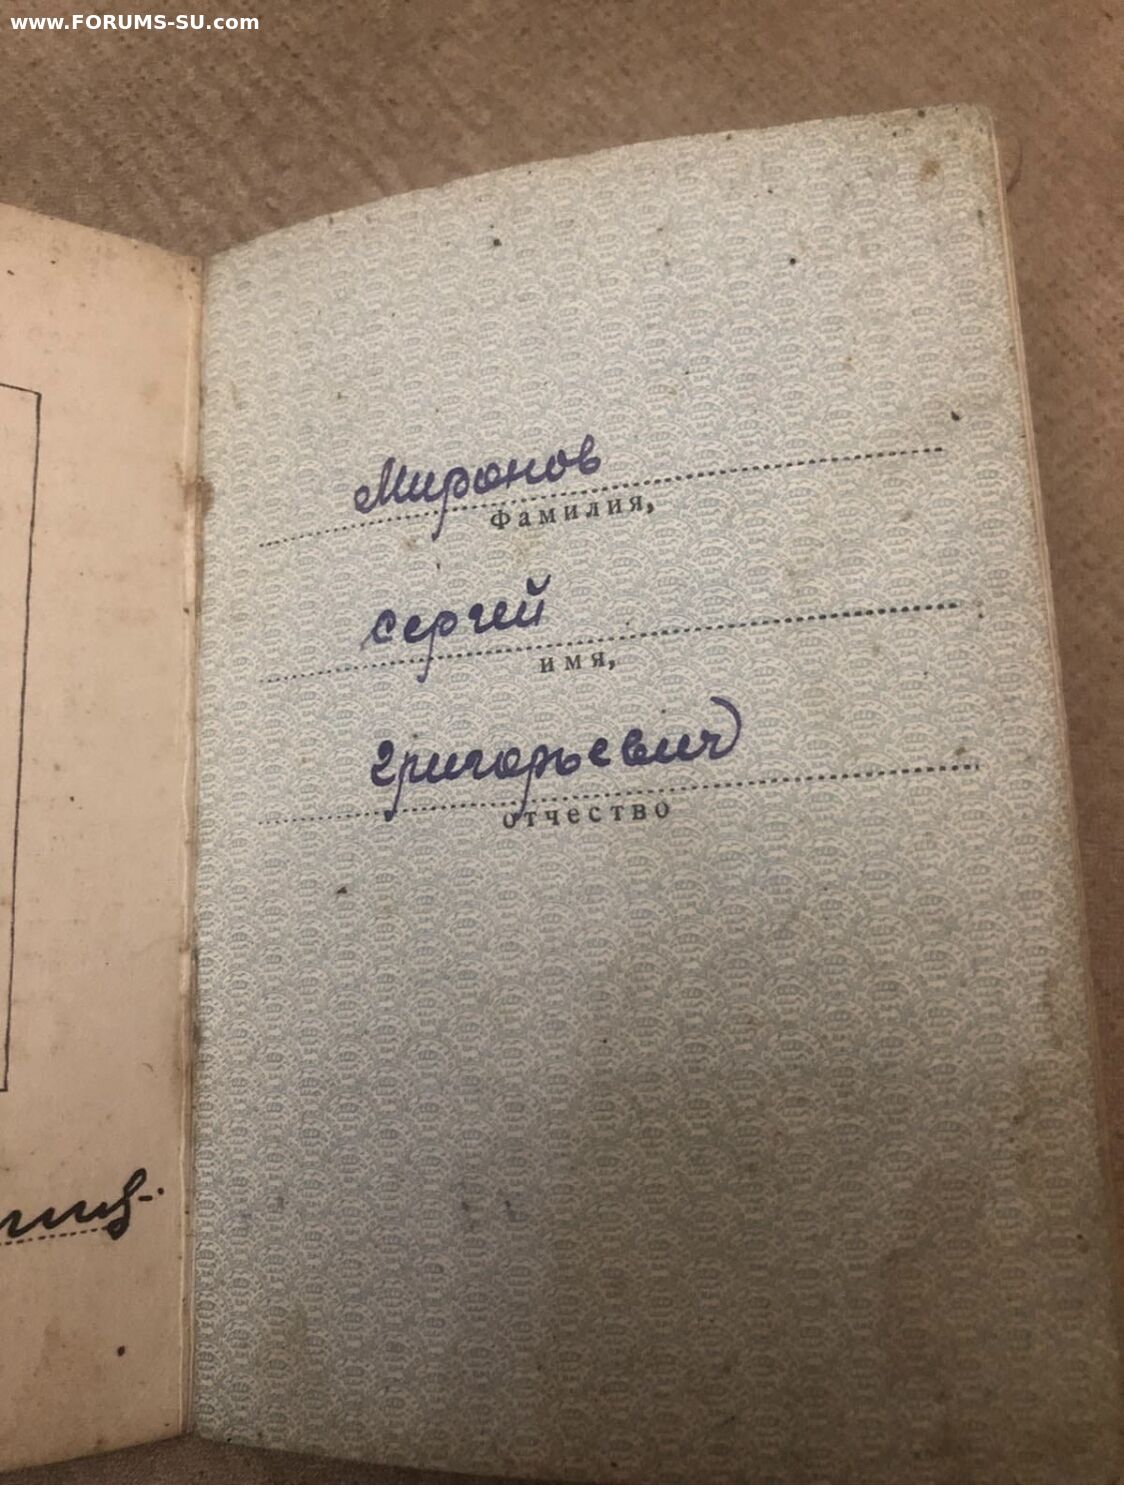 www.FORUMS-SU.com
Миронов
Фамилия,
Сергей
имя,
Григорьевич
отчество